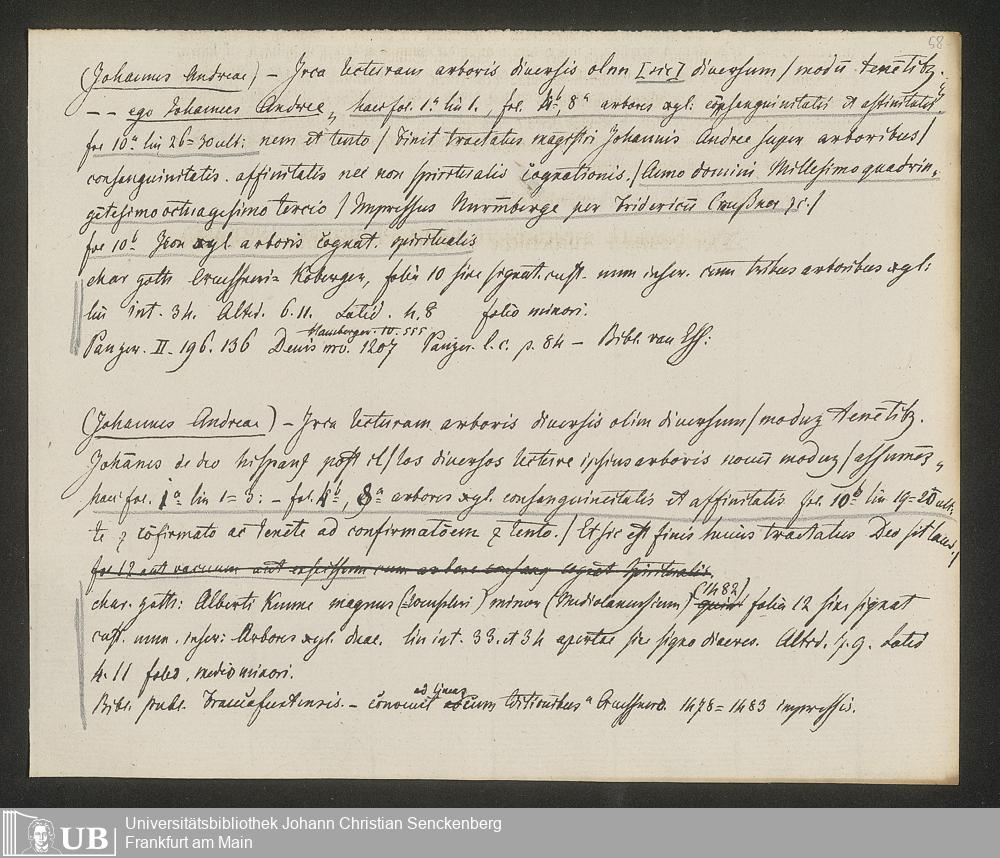 58
(Johannes Andreae) – Irca lecturam arboris diversis olim [sic] diversum / modū tenētibz.
– – ego Johannes Andree „ haec fol. 1.a lin 1. , fol. 4b, 8a arbores xyl. cōsanguinitatis et affinitatis
fol 10a lin 26=30 ult: nem et tento / Finit tractatus magistri Johannis Andree super arboribus /
consanguinitatis . affinitatis nec non spiritualis cognationis. / Anno domini Millesimo quadrin„
gētesimo octuagesimo tercio / Impressus Nurmberge per Fridericū Creußner zc. /
fol 10b Icon xyl arboris cognat. spiritualis
char goth Creussneri= Koberger, folia 10 sine signat. cust. num inser. cum tribus arboribus xyl:
lin int. 34. Altid. 6.11. Latid. 4.8 folio minori.
Hamberger. IV. 555
Panzer. II. 196. 136 Denis nro. 1207 Panzer. l. c. p. 84 – Bibl. van Eß:
(Johannes Andreae) – Irca lecturam arboris diversis olim diversum / moduz tenētibz.
Johānes de deo hispanꝰ post il / los diversos lecture ipsius arboris novū moduz / assumēs „
haec fol. 1a lin 1=3: – fol. 4b, 8a arbores xyl. consanguinitatis et affinitatis fol. 10b lin 19=20 ult:
te z cōfirmato ac tenēte ad confirmatōem z tento. / Et sic est finis huius tractatus Deo sit laus. /
char. goth: Alberti Kunne magnus ( ) minor (Mediolanensium) (1482) folia 12 sine signat
cust. num. inser: Arbores xyl. duae. lin int. 33. et 34 apertae sine signo diaeres. Altid. 7.9. Latid
4.11 folio, medio minori.
ad lineaz
Bibl. publ. Francofurtensis. – convenit cum editionibus a Creussnero. 1478=1483 impressis.
UB
Universitätsbibliothek Johann Christian Senckenberg
Frankfurt am Main